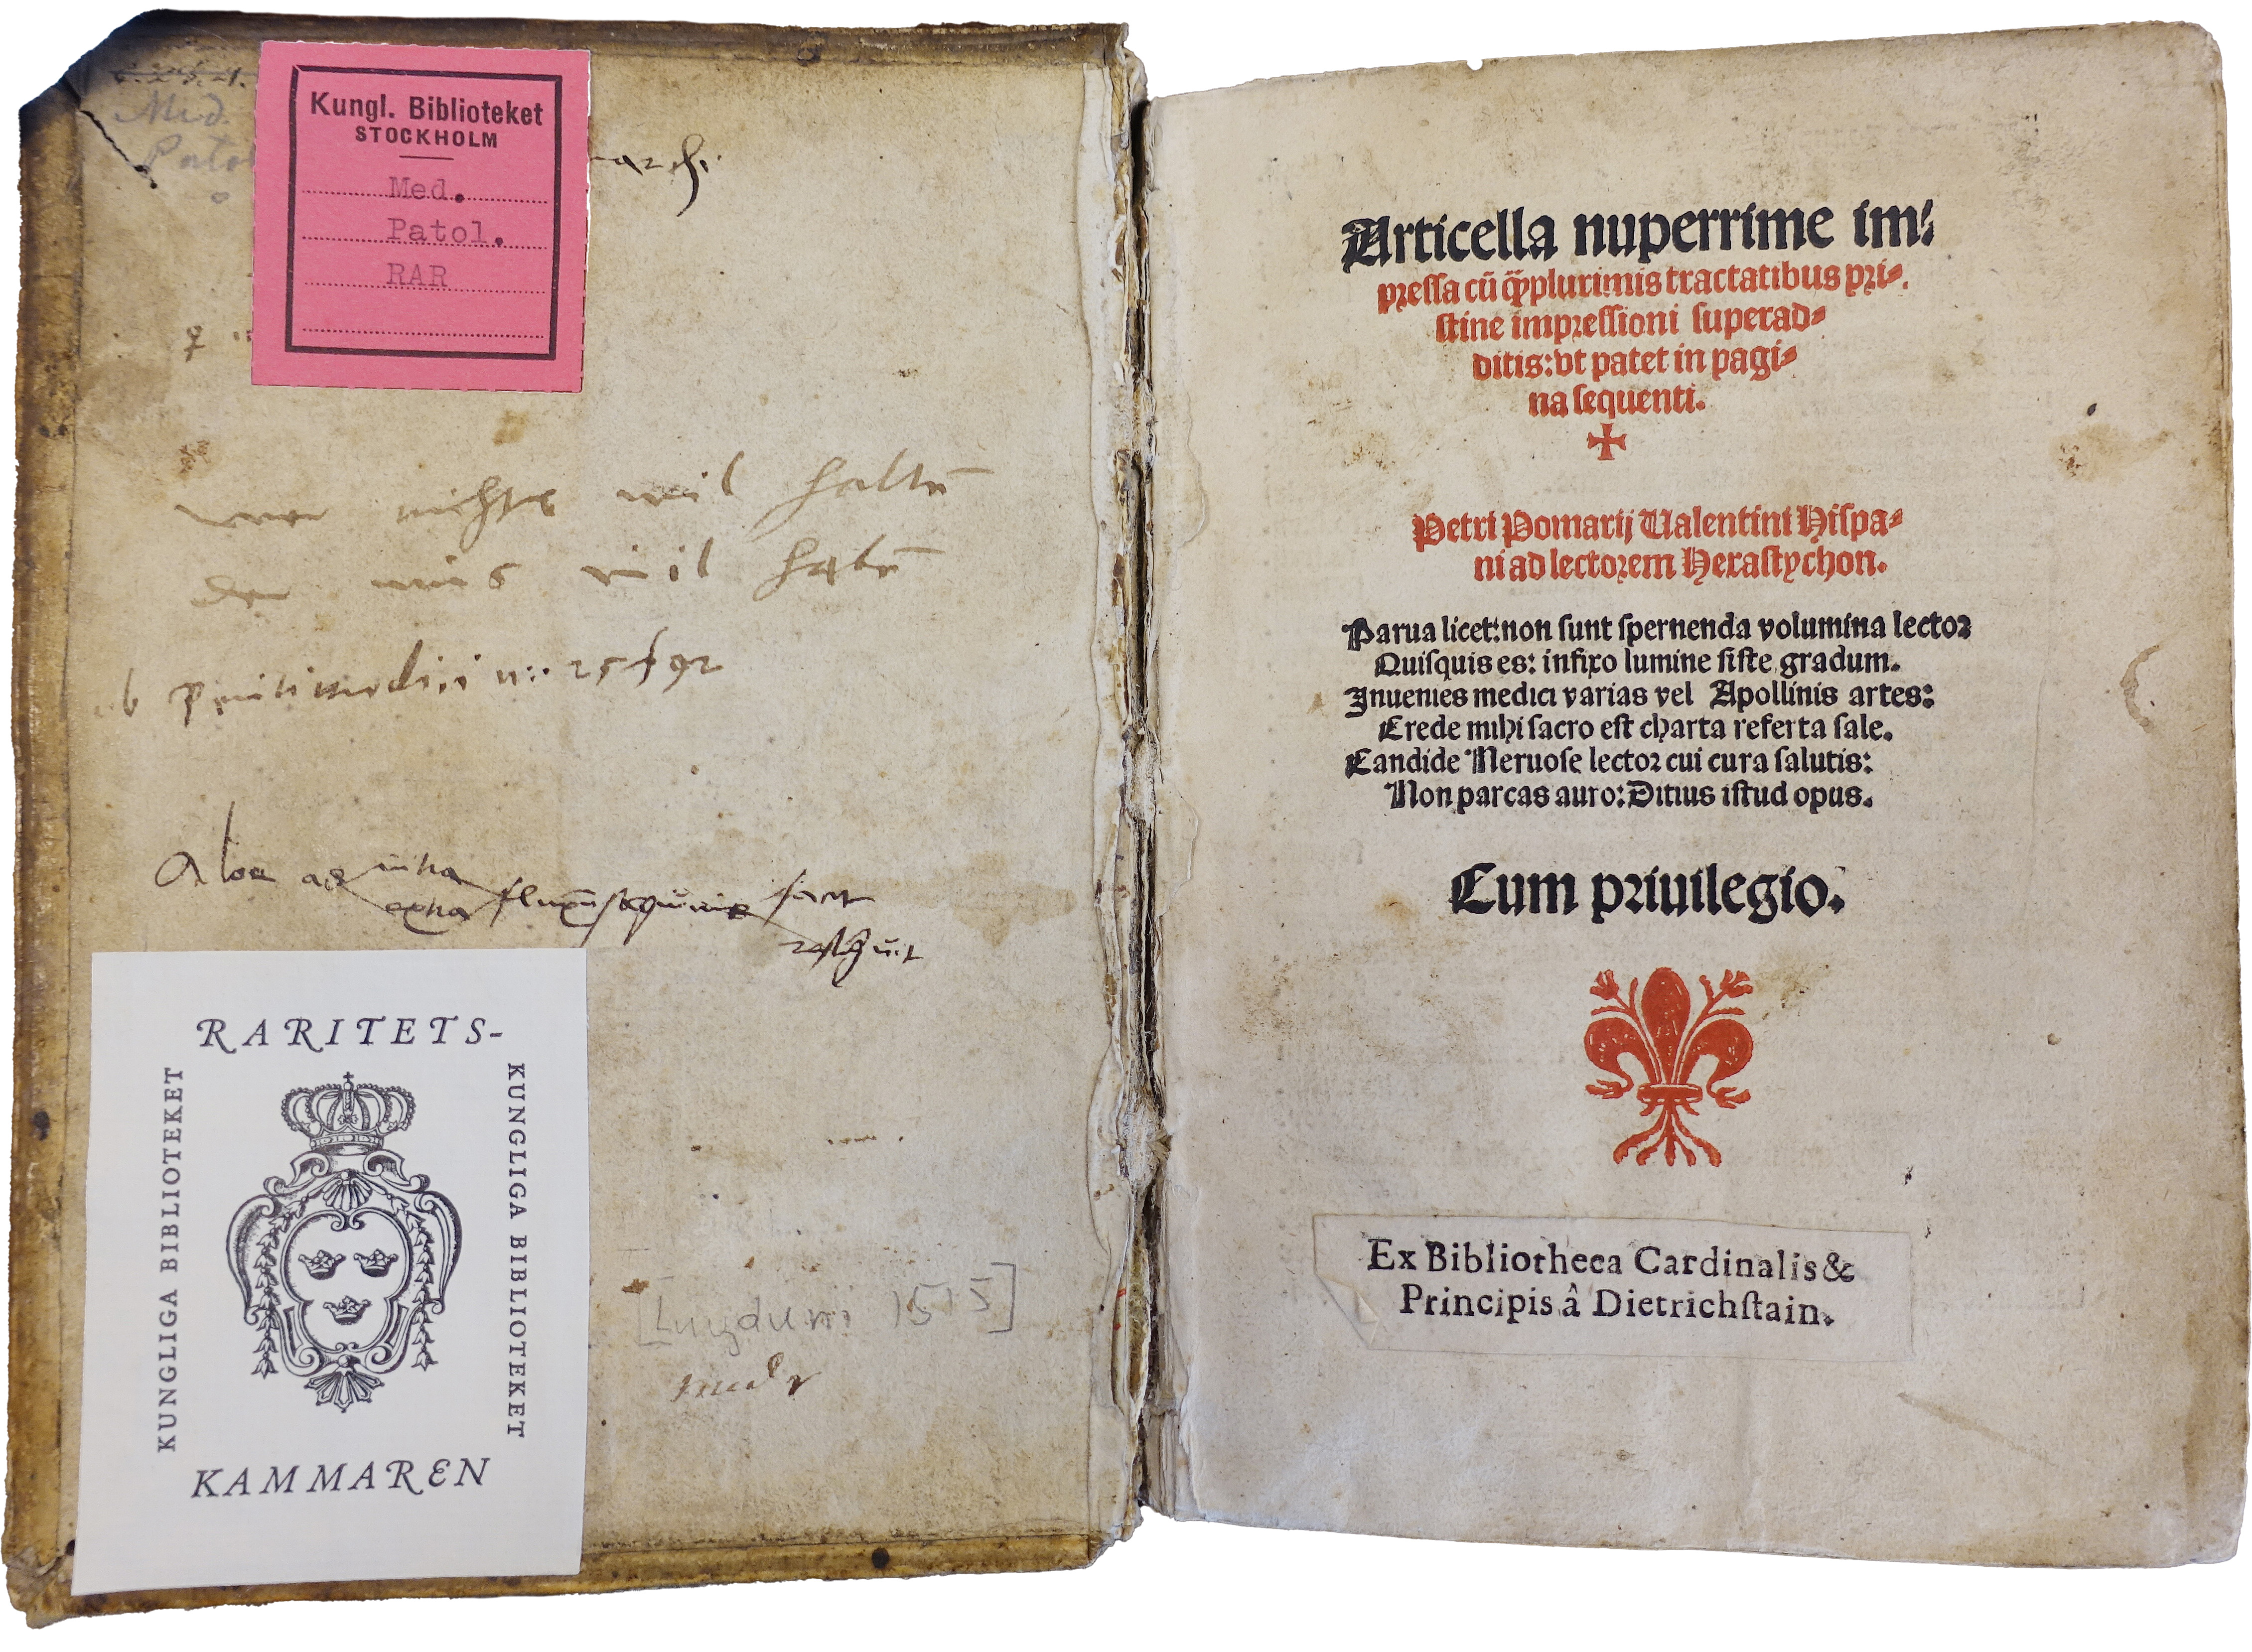 Med.
Kungl. Biblioteket
STOCKHOLM
Med.
Patol.
RAR
wer nichts wil haltē
der mus vil habē
Aloe ad intra fluxū sanguinis facit
extra restīguit
RARITETS-
KUNGLIGA BIBLIOTEKET
KUNGLIGA BIBLIOTEKET
KAMMAREN
[Lugduni 1515]
Articella nuperrime im⸗
pressa cū q̈̄plurimis tractatibus pri⸗
stine impressioni superad⸗
ditis: vt patet in pagi⸗
na sequenti.
Petri Pomarij Ualentini Hispa⸗
ni ad lectorem Hexastychon.
Parua licet: non sunt spernenda volumina lector
Quisquis es: infixo lumine siste gradum.
Inuenies medici varias vel Apollinis artes:
Crede mihi sacro est charta referta sale.
Candide Neruose lector cui cura salutis:
Non parcas auro: Ditius istud opus.
Cum priuilegio.
Ex Bibliotheca Cardinalis &
Principis â Dietrichſtain.